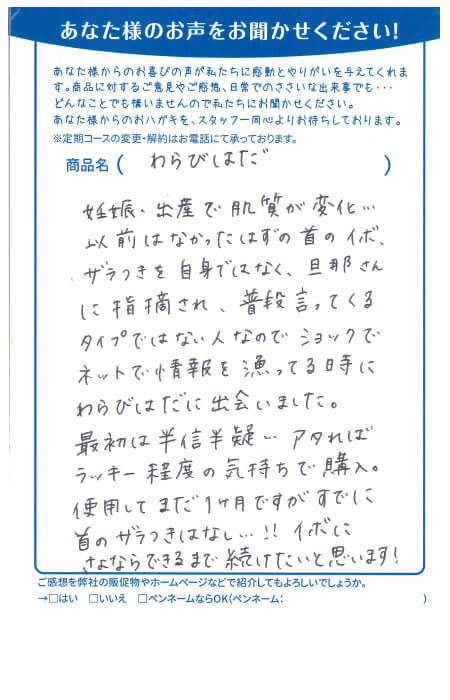 あなた様のお声をお聞かせください!
あなた様からのお喜びの声が私たちに感動とやりがいを与えてくれま
す。商品に対するご意見やご感想、日常でのささいな出来事でも・・・
どんなことでも構いませんので私たちにお聞かせください。
あなた様からのおハガキを、スタッフ一同心よりお待ちしております。
※定期コースの変更・解約はお電話にて承っております。
商品名( わらびはだ )
妊娠・出産で肌質が変化…
以前はなかったはずの首のイボ、
ザラつきを自身ではなく、旦那さん
に指摘され、普段言ってくる
タイプではない人なのでショックで
ネットで情報を漁ってる時に
わらびはだに出会いました。
最初は半信半疑… アタれば
ラッキー程度の気持ちで購入。
使用してまだ1ヶ月ですがすでに
首のザラつきはなし…!! イボに
さよならできるまで続けたいと思います!
ご感想を弊社の販促物やホームページなどで紹介してもよろしいでしょうか。
→□はい □いいえ □ペンネームならOK(ペンネーム: )